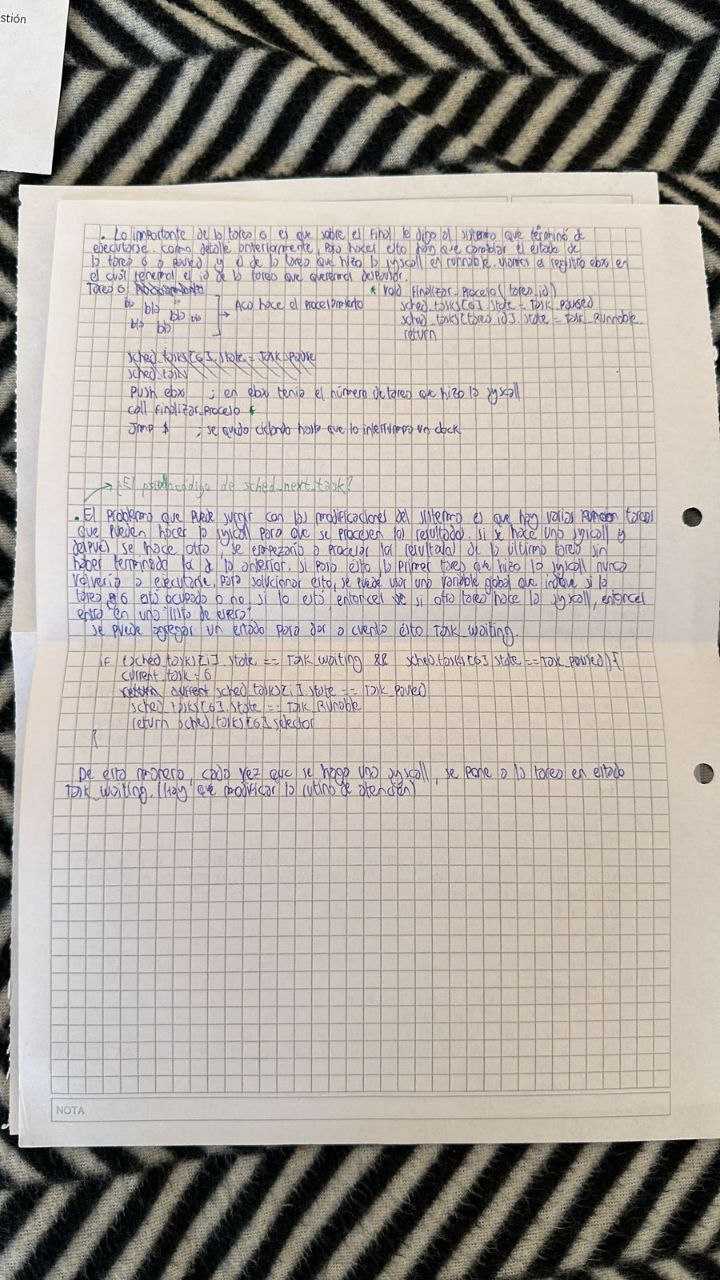 stión
. Lo importante de la tarea 6 es que sobre el final le digo al sistema que terminó de
ejecutarse. Como detallé anteriormente, para hacer esto hay que cambiar el estado de
la tarea 6 a paused y el de la tarea que hizo la syscall en runnable. Usamos el registro ebx en
el cual tenemos el id de la tarea que queremos despausar.
Tarea 6: Procesamiento
bla bla bla bla bla bla bla
→ Acá hace el procesamiento
* void Finalizar_Proceso (tarea_id)
sched_tasks[6].state = TASK_PAUSED
sched_tasks[tarea_id].state = TASK_Runnable
return
sched_tasks[6].state = TASK_Pause
sched_task
Push ebx ; en ebx tenía el número de tarea que hizo la syscall
call Finalizar_Proceso *
Jmp $ ; se queda ciclando hasta que lo interrumpa un clock
→ ¿El pseudocódigo de sched_next_task?
. El problema que puede surgir con las modificaciones del sistema es que hay varias tareas
que pueden hacer la syscall para que se procesen los resultados. Si se hace una syscall y
después se hace otra, se empezaría a procesar los resultados de la última tarea sin
haber terminado la de la anterior. Si pasa esto, la primer tarea que hizo la syscall nunca
volvería a ejecutarse. Para solucionar esto, se puede usar una variable global que indique si la
tarea 6 está ocupada o no. Si lo está entonces si otra tarea hace la syscall, entonces
entra en una "lista de espera".
Se puede agregar un estado para dar a cuenta esto TASK_Waiting.
if (sched_tasks[i].state == TASK_Waiting && sched_tasks[6].state == TASK_PAUSED) {
current_task = 6
return current sched_tasks[i].state == TASK_Paused
sched_tasks[6].state == TASK_Runable
return sched_tasks[6].selector
}
De esta manera, cada vez que se haga una syscall, se pone a la tarea en estado
TASK_Waiting. (Hay que modificar la rutina de atención)
NOTA